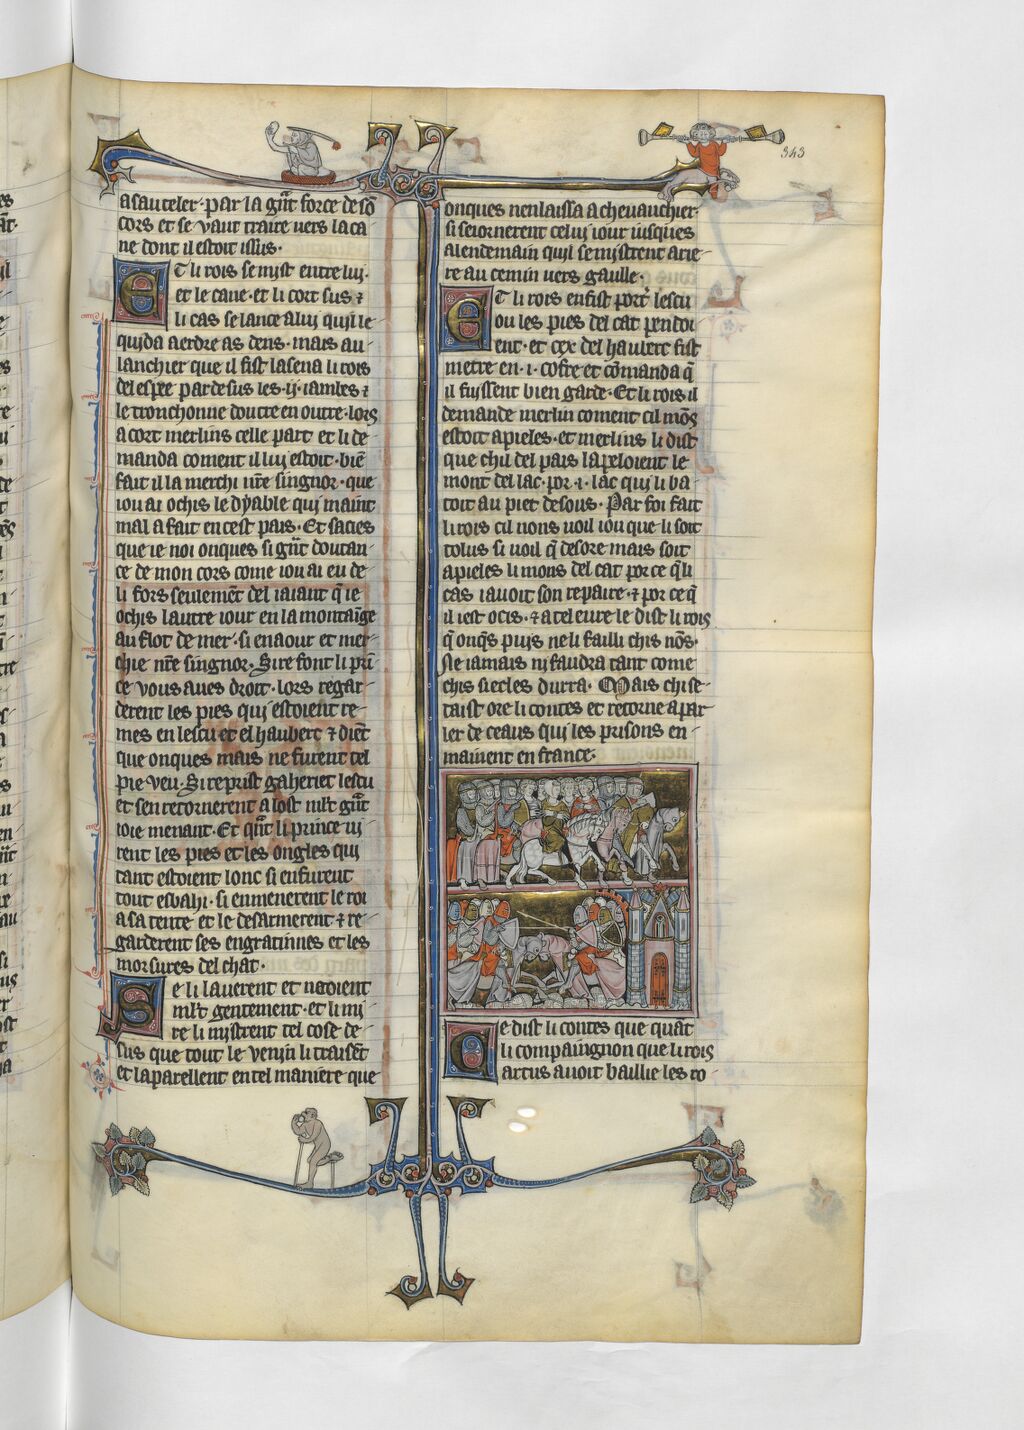 343
asauteler · par la gr̄t force de sō
cors et se vaut traire uers la ca
ue dont il estoit issus ·
Et li rois se mist entre lui ·
et le caue · et li cort sus ⁊
li cas se lance a lui qui le
quida aerdre as dens · mais au
lanchier que il fist lasena li rois
del espee par desus les · ij · iambes ⁊
le tronchonne doutre en outre · lors
acort merlins celle part et li de
manda coment il lui estoit · biē
fait il la merchi nr̄e singnor · que
iou ai ochis le dyable qui maint
mal a fait en cest pais · Et sacies
que ie noi onques si gr̄t doutan
ce de mon cors come iou ai eu de
li fors seulemēt del iaiant q̄ ie
ochis lautre iour en la montaigne
au flot de mer · si en aour et mer
chie nr̄e singnor · Sire font li prī
ce vous aues droit · lors regar
derent les pies qui estoient re
mes en lescu et el haubert ⁊ diēt
que onques mais ne furent tel
pie veu · Si reprist gaheriet lescu
et sen retornerent a lost ml̄t gr̄t
ioie menant · Et q̄nt li prince ui
rent les pies et les ongles qui
tant estoient lonc si en furent
tout esbahi · si enmenerent le roi
a sa tente et le desarmerent ⁊ re
garderent ses engratinnes et les
morsures del chat ·
Se li lauerent et natoient
ml̄t gentement · et li mi
re li mistrent tel cose de
sus que tout le venin li traisēt
et laparellent en tel maniere que
onques nen laissa a cheuauchier
si seiornerent celui iour iusques
a lendemain quil se mistrent arie
re au cemin uers gaulle ·
Et li rois en fist porter lescu
ou les pies del cat pendoi
ent · et cex del haubert fist
metre en · i · cofre et cōmanda q̄
il fuissent bien garde · Et li rois il
demande merlin coment cil mōs
estoit apieles · et merlins li dist
que chil del pais lapeloient le
mont del lac · por · i · lac qui li ba
toit au piet desous · Par foi fait
li rois cil nons uoil iou que li soit
tolus si uoil q̄ desore mais soit
apieles li mons del cat por ce q̄ li
cas i auoit son repaire · ⁊ por ce q̄
il i est ocis · ⁊ a tel eure le dist li rois
q̄ onq̄s puis ne li failli chis nōs ·
Ne iamais ni faudra tant come
chis siecles durra · Mais chi se
taist ore li contes et retorne a par
ler de ceaus qui les prisons en
mainent en france ·
Ce dist li contes que quāt
li compaingnon que li rois
artus auoit baillie les ro